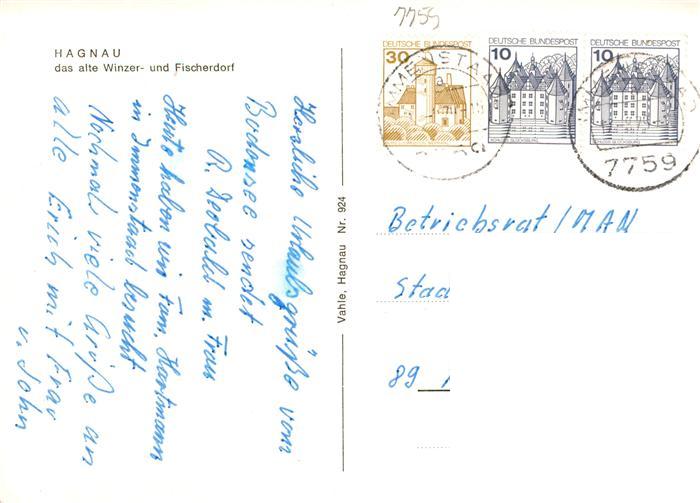 HAGNAU
das alte Winzer- und Fischerdorf
Herzliche Urlaubsgrüße vom
Bodensee sendet
R. m. Frau
Heute haben wir Fam. Hartmann
in Immenstaad besucht
Nochmal viele Grüße an
alle Erich mit Frau
u. Sohn
Vahle, Hagnau Nr. 924
7759
DEUTSCHE BUNDESPOST
30
DEUTSCHE BUNDESPOST
10
SCHLOSS GLÜCKSBURG
DEUTSCHE BUNDESPOST
10
SCHLOSS GLÜCKSBURG
7759
Betriebsrat/MAN
Staa
89